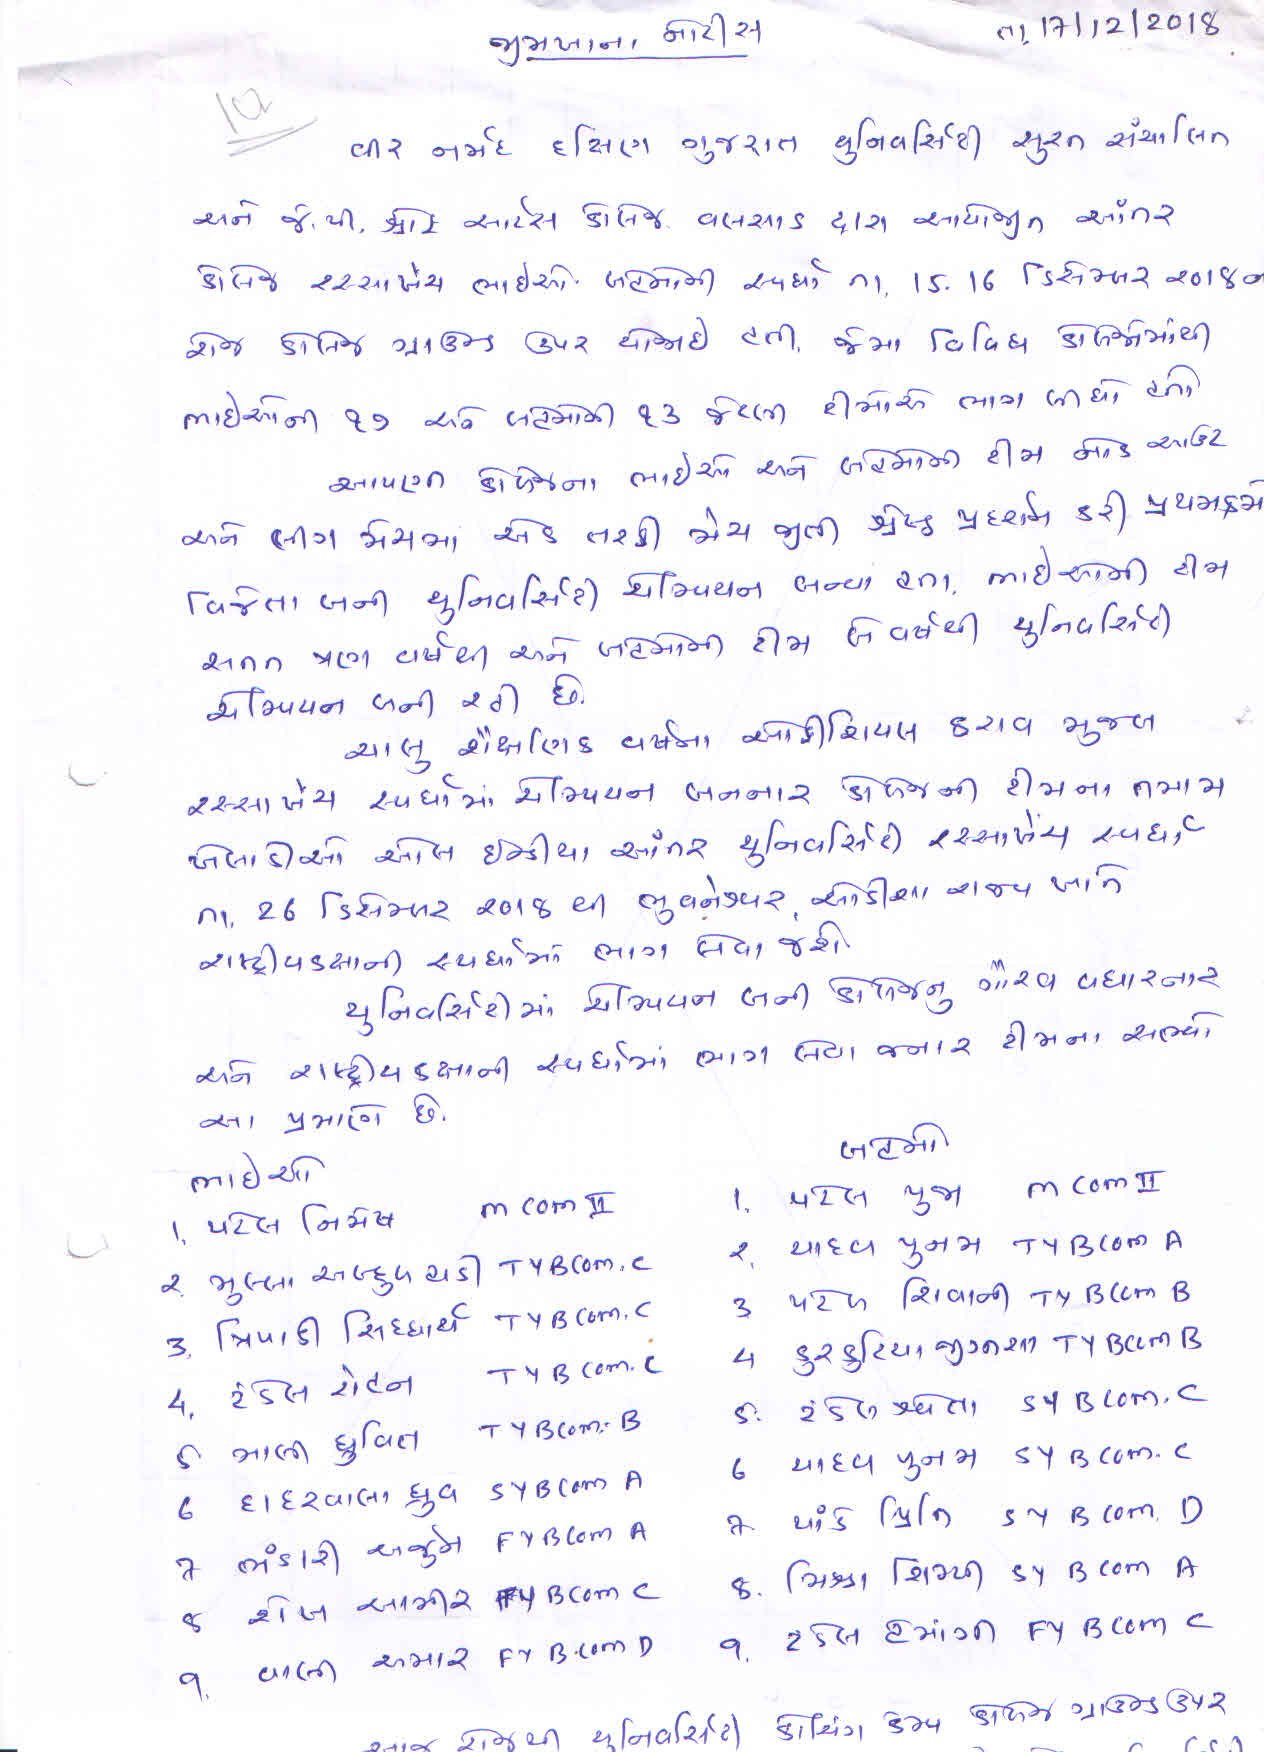 જીમખાના નોટીસ
તા, 17/12/2018
10
વીર નર્મદ દક્ષિણ ગુજરાત યુનિવર્સિટી સુરત સંચાલિત
અને જે.પી. શ્રોફ આર્ટસ કોલેજ વલસાડ દ્વારા આયોજીત આંતર
કોલેજ રસ્સાખેંચ ભાઈઓ બહેનોની સ્પર્ધા તા, 15. 16 ડિસેમ્બર ૨૦૧૪ ના
રોજ કોલેજ ગ્રાઉન્ડ ઉપર યોજાઈ હતી. જેમાં વિવિધ કોલેજોમાંથી
ભાઈઓની ૧૭ અને બહેનોની ૧૩ જેટલી ટીમોએ ભાગ લીધો હતો
આપણી કોલેજના ભાઈઓ અને બહેનોની ટીમ નોક આઉટ
અને લીગ મેચમાં એક તરફી મેચ જીતી શ્રેષ્ઠ પ્રદર્શન કરી પ્રથમક્રમે
વિજેતા બની યુનિવર્સિટી ચેમ્પિયન બન્યા હતા. ભાઈઓની ટીમ
સતત ત્રણ વર્ષથી અને બહેનોની ટીમ બે વર્ષથી યુનિવર્સિટી
ચેમ્પિયન બની રહી છે.
ચાલુ શૈક્ષણિક વર્ષના ઓફીશિયલ ઠરાવ મુજબ
રસ્સાખેંચ સ્પર્ધામાં ચેમ્પિયન બનનાર કોલેજની ટીમના તમામ
ખેલાડીઓ ઓલ ઈન્ડીયા આંતર યુનિવર્સિટી રસ્સાખેંચ સ્પર્ધા
તા, 26 ડિસેમ્બર ૨૦૧૪ થી ભુવનેશ્વર, ઓડીશા રાજ્ય ખાતે
રાષ્ટ્રીયકક્ષાની સ્પર્ધામાં ભાગ લેવા જશે.
યુનિવર્સિટીમાં ચેમ્પિયન બની કોલેજનુ ગૌરવ વધારનાર
અને રાષ્ટ્રીયકક્ષાની સ્પર્ધામાં ભાગ લેવા જનાર ટીમના સભ્યો
આ પ્રમાણે છે.
ભાઈઓ
1, પટેલ નિમેષ M COM II
૨. મુલ્લા TYBCom. C
3, ત્રિપાઠી સિધ્ધાર્થ TYBCom. C
4, ટંડેલ રોહન TYBCom. C
૬ માલી ધ્રુવિલ TYBCom. B
6 દાદરવાલા ધ્રુવ SYBCom A
૭ ભંડારી FYBCom A
૪ શેખ આમીર FYBCom C
૧. વાની અમાર FYB.Com D
બહેનો
1. પટેલ પુજા M COM II
૨, યાદવ પુનમ TYBCom A
3 પટેલ શિવાની TYBCom B
4 કુરકુટિયા જીજ્ઞાશા TYBCom B
૬. ટંડેલ શ્વેતા SYBCom. C
6 યાદવ પુનમ SYBCom. C
૭ પાંડે પ્રિતિ SYBCom. D
૪. મિશ્રા શિમ્પી SYBCom A
૧. ટંડેલ હેમાંગી FYBCom C
આજ રોજથી યુનિવર્સિટી કોચિંગ કેમ્પ કોલેજ ગ્રાઉન્ડ ઉપર